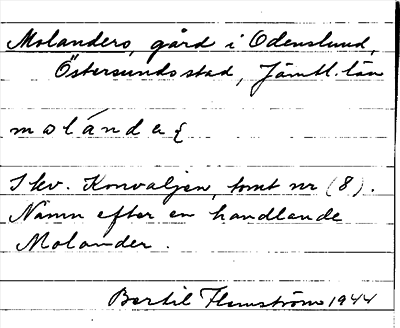 Molanders, gård i Odenslund,
Östersunds stad, Jämtl. län
molánda{
I kv. Konvaljen, tomt nr (8).
Namn efter en handlande
Molander.
Bertil Flemström 1944